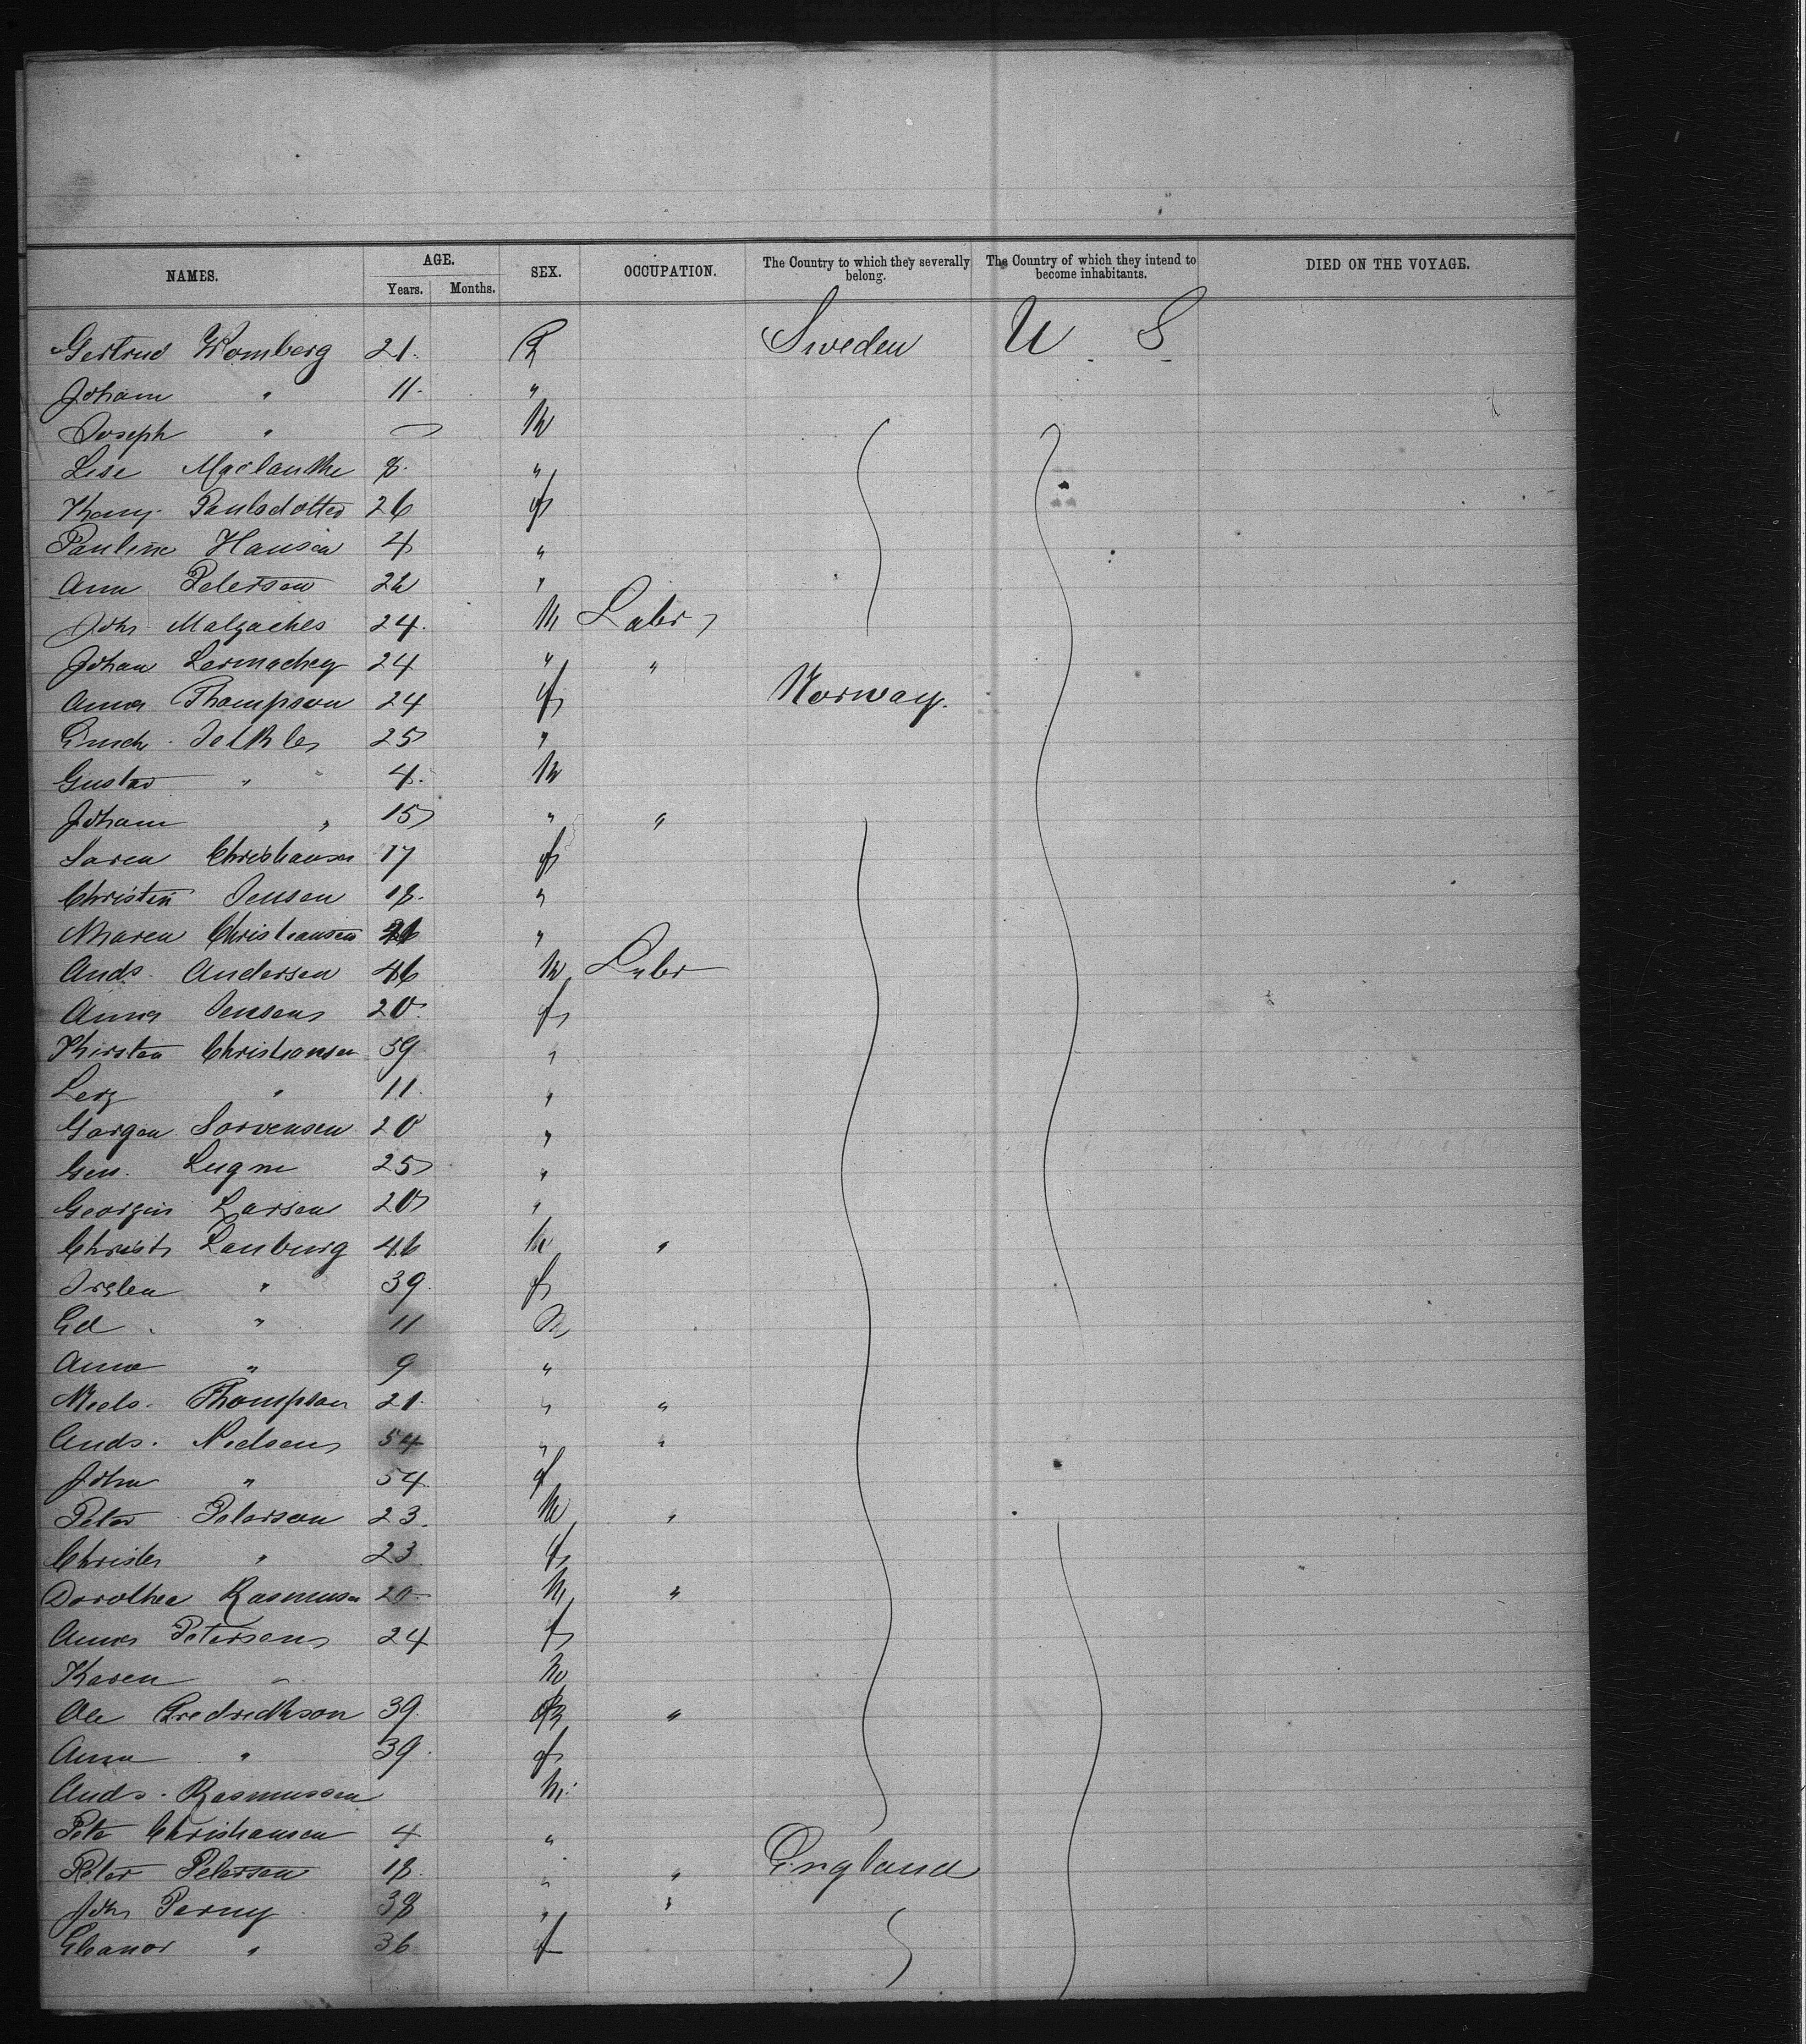 NAMES. AGE. Years. Months. SEX. OCCUPATION. The Country to which they severally belong. The Country of which they intend to become inhabitants. DIED ON THE VOYAGE.
Gertrud Womberg 21. Sweden U. S.
Joham " 11. "
Joseph " M
Lise 8. "
Paulsdotter 26 f
Pauline Hansen 4 "
Ann Peterson 22 "
Joh Malgaches 24. M Labr
Johan Lermachey 24 " "
Anna Thompson 24 f Norway.
25 "
Gustav " 4. M
Joham " 15 " "
Saren Christiansen 17 f
Christin Jensen 18. "
Maren Christiansen "
Ands. Andersen 46 M Labr
Anna Jensen 20. f
Kirsten Christiansen 39 "
" 11. "
Gorgen Sorvensen 20 "
Lugm 25 "
Georgin Larsen 20 "
Christ Lanburg 46 M "
" 39. f
Ed " 11 M
Anna " 9 "
Niels. Thompson 21. " "
Ands. Nielsen 54 " "
John " 54 f
Peter Peterson 23. M "
Christer " 23. f
Dorothea Rasmusn 20 M "
Anna Peterson 24 f
Karen " M
Ole Fredrickson 39. "
Anna " 39. f
Ands. Rasmussen M.
Pete Christiansen 4 "
Peter Petersen 18. " " England
Joh Perny 38 " "
Eleanor " 36 f